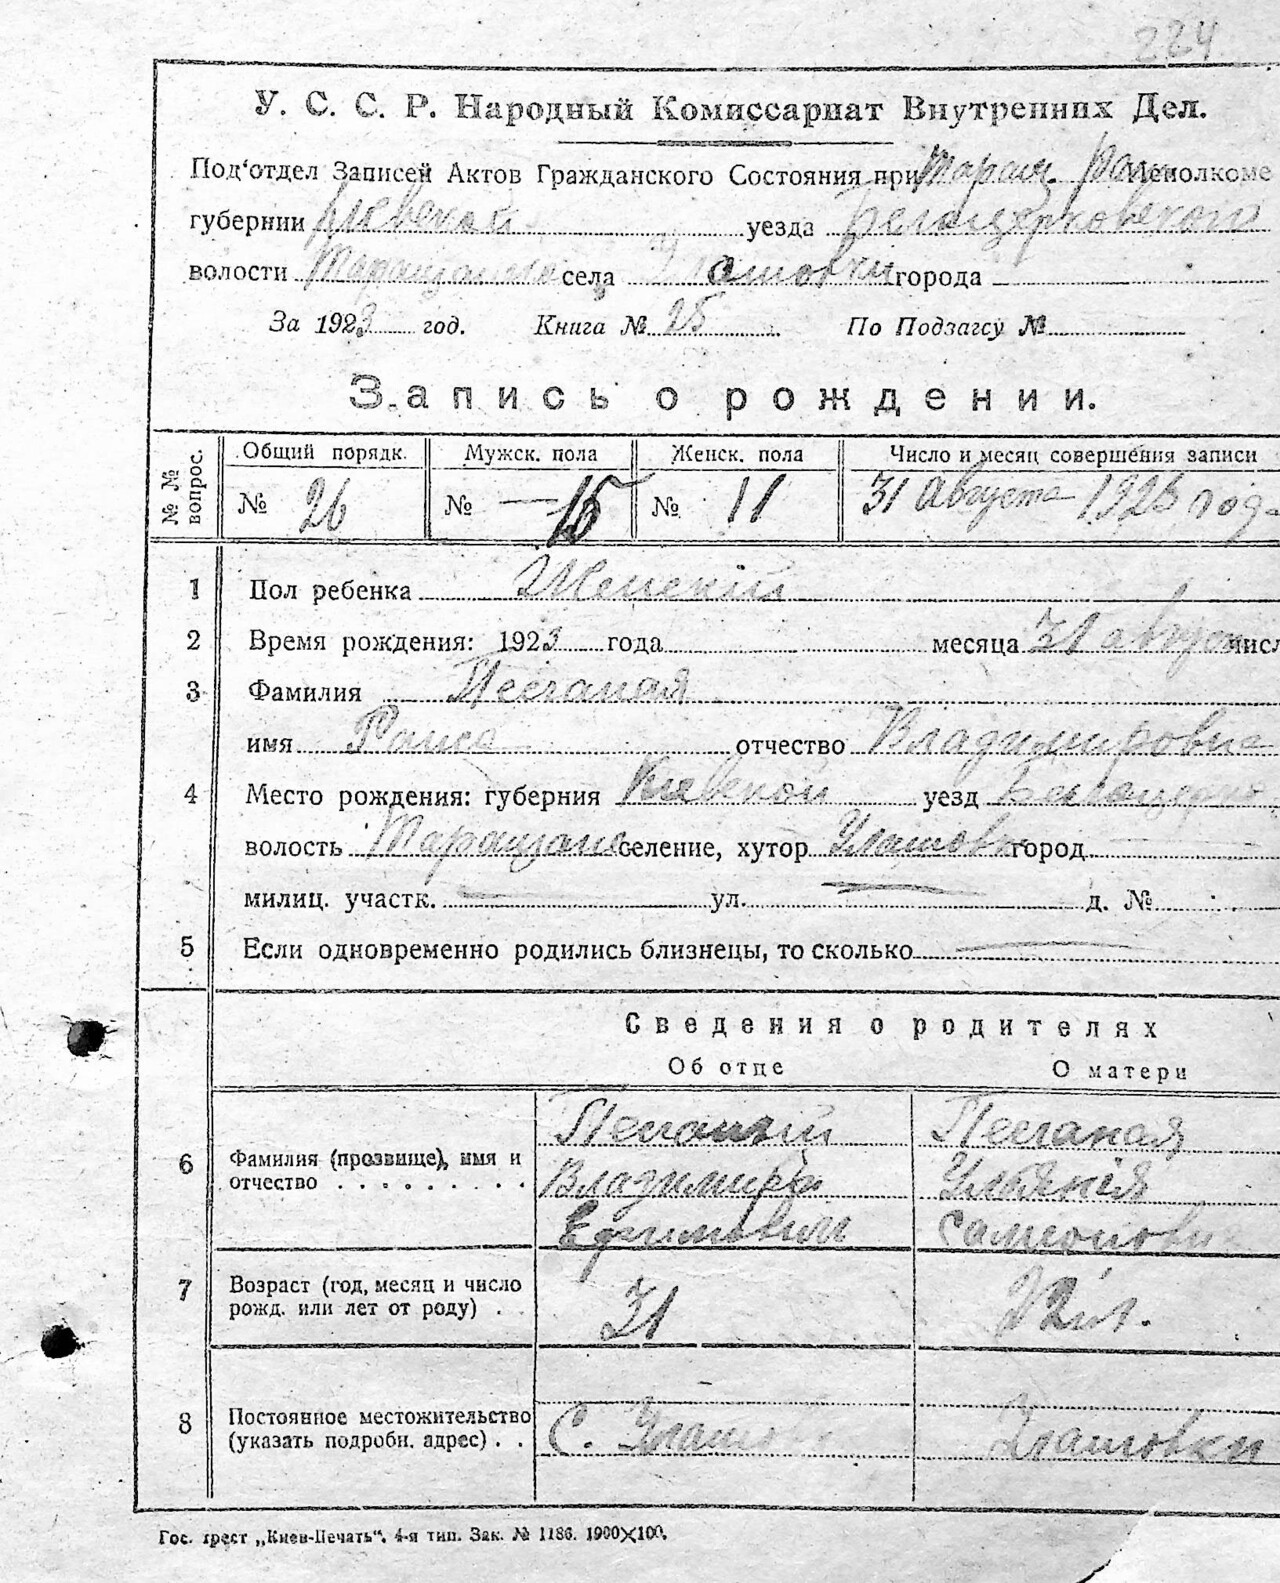 224
У. С. С. Р. Народный Комиссариат Внутренних Дел.
Под‘отдел Записей Актов Гражданского Состояния при Таращ. Рай Исполкоме
губернии Киевской уезда Белоцерковской
волости Таращанс села города
За 1923 год. Книга № 25 По Подзагсу №
Запись о рождении.
№ № вопрос.
Общий порядк. Мужск. пола Женск. пола Число и месяц совершения записи
№ 26 № — 15 № 11 31 Августа 1923 год
1 Пол ребенка Женский
2 Время рождения: 1923 года месяца 31 август числ
3 Фамилия
имя Раиса отчество Владимировна
4 Место рождения: губерния Киевской уезд Белоцерко
волость Таращанс селение, хутор Улашовк город
милиц. участк. ул. д. №
5 Если одновременно родились близнецы, то сколько
Сведения о родителях
Об отце О матери
6 Фамилия (прозвище), имя и отчество
Владимир Ульяния
Ефимович Самсонови
7 Возраст (год, месяц и число рожд. или лет от роду) 31
8 Постоянное местожительство (указать подробн. адрес) С. Улашовк Улашовки
Гос. трест „Киев-Печать“. 4-я тип. Зак. № 1186. 1900×100.